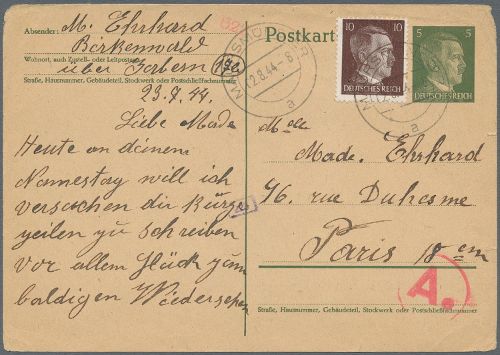 Absender: M. Ehrhard
Birkenwald
Wohnort, auch Zustell- oder Leitpostamt
über Zabern (17a)
Straße, Hausnummer, Gebäudeteil, Stockwerk oder Postschließfachnummer
23.7.44.
Liebe Made
Heute an deinem
Namestag will ich
versuchen dir kurze
zeilen zu schreiben
vor allem Glück zum
baldigen Wiedersehen
Postkarte
10 10
DEUTSCHES REICH
5 5
DEUTSCHES REICH
2.8.44.
a
a
Melle
Made. Ehrhard
76. rue Duhesme
Paris 18 em
A.
Straße, Hausnummer, Gebäudeteil, Stockwerk oder Postschließfachnummer